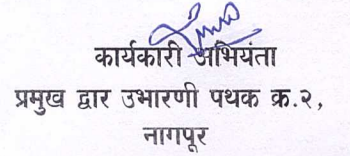 कार्यकारी अभियंता
प्रमुख द्वार उभारणी पथक क्र.२,
नागपूर